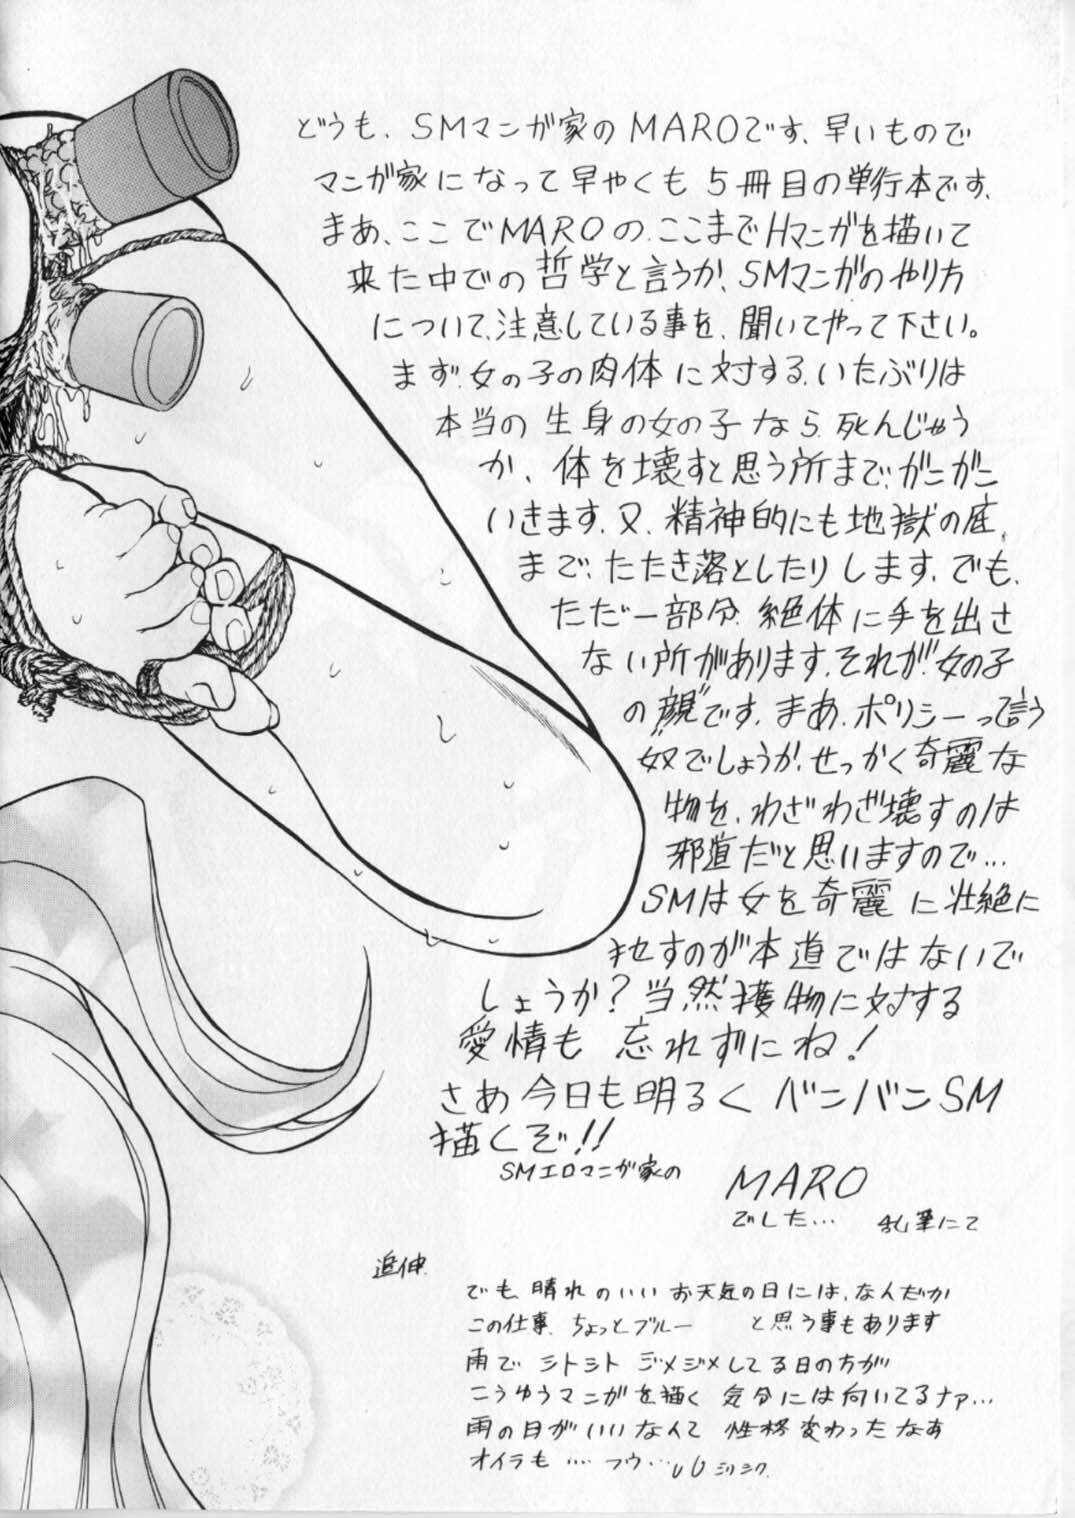 どうも、SMマンガ家のMAROです、早いもので
マンガ家になって早やくも5冊目の単行本です、
まあ、ここでMAROの、ここまでHマンガを描いて
来た中での哲学と言うか、SMマンガのやり方
について、注意している事を、聞いてやって下さい。
まず、女の子の肉体に対する、いたぶりは
本当の生身の女の子なら、死んじゃう
か、体を壊すと思う所まで、ガンガン
いきます、又、精神的にも地獄の底、
まで、たたき落としたりします、でも、
ただ一部分、絶体に手を出さ
ない所があります、それが、女の子
の"顔"です、まあ、ポリシーって言う
奴でしょうか、せっかく奇麗な
物を、わざわざ壊すのは
邪道だと思いますので…
SMは女を奇麗に壮絶に
すのが本道ではないで
しょうか?当然獲物に対する
愛情も忘れずにね!
さあ今日も明るくバンバンSM
描くぞ!!
SMエロマンガ家の
MARO
でした… 乱筆にて
追伸、
でも、晴れのいいお天気の日には、なんだか
この仕事、ちょっとブルー と思う事もあります
雨でシトシトジメジメしてる日の方が
こうゆうマンガを描く気分には向いてるナァ…
雨の日がいいなんて性格変わったなあ
オイラも…フウ…